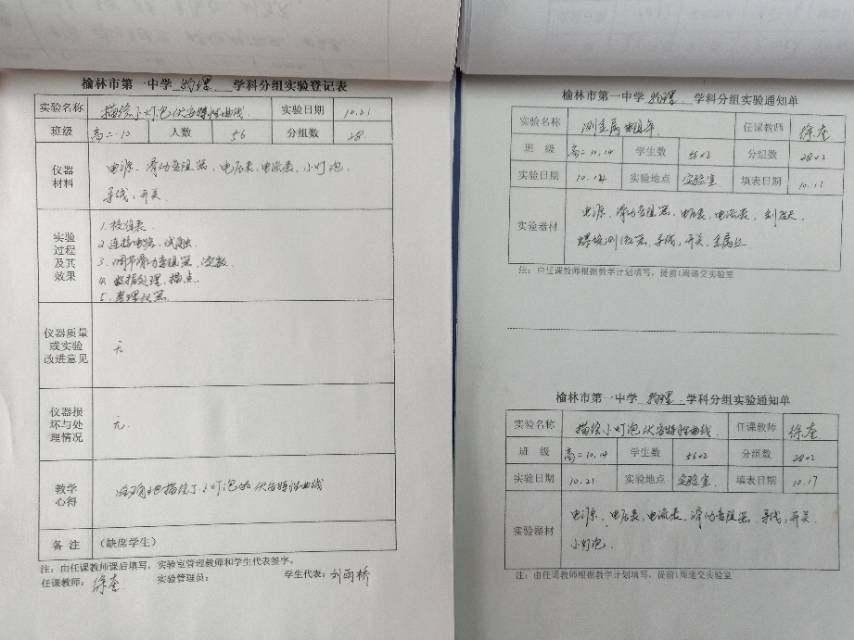 榆林市第一中学 物理 学科分组实验登记表
实验名称 描绘小灯泡伏安特性曲线 实验日期 10.21
班级 高二.10 人数 56 分组数 28
仪器材料 电源、滑动变阻器、电压表、电流表、小灯泡
导线、开关
实验过程及其效果
1.校准表
2.连接电路、试触
3.调节滑动变阻器、读数
4.数据处理、描点
5.整理仪器
仪器质量或实验改进意见 无
仪器损坏与处理情况 无
教学心得 准确地描绘了小灯泡的伏安特性曲线
备 注 (缺席学生)
注:由任课教师课后填写,实验室管理教师和学生代表签字。
任课教师:徐奎 实验管理员: 学生代表:刘雨桥
榆林市第一中学 物理 学科分组实验通知单
实验名称 测金属电阻率 任课教师 徐奎
班 级 高二10,14 学生数 56×2 分组数 28×2
实验日期 10.14 实验地点 实验室 填表日期 10.13
实验器材 电源、滑动变阻器、电压表、电流表、刻度尺
螺旋测微器、导线、开关、金属丝
注:由任课教师根据教学计划填写,提前1周递交实验室
榆林市第一中学 物理 学科分组实验通知单
实验名称 描绘小灯泡伏安特性曲线 任课教师 徐奎
班 级 高二10,14 学生数 56×2 分组数 28×2
实验日期 10.21 实验地点 实验室 填表日期 10.17
实验器材 电源、电压表、电流表、滑动变阻器、导线、开关
小灯泡
注:由任课教师根据教学计划填写,提前1周递交实验室